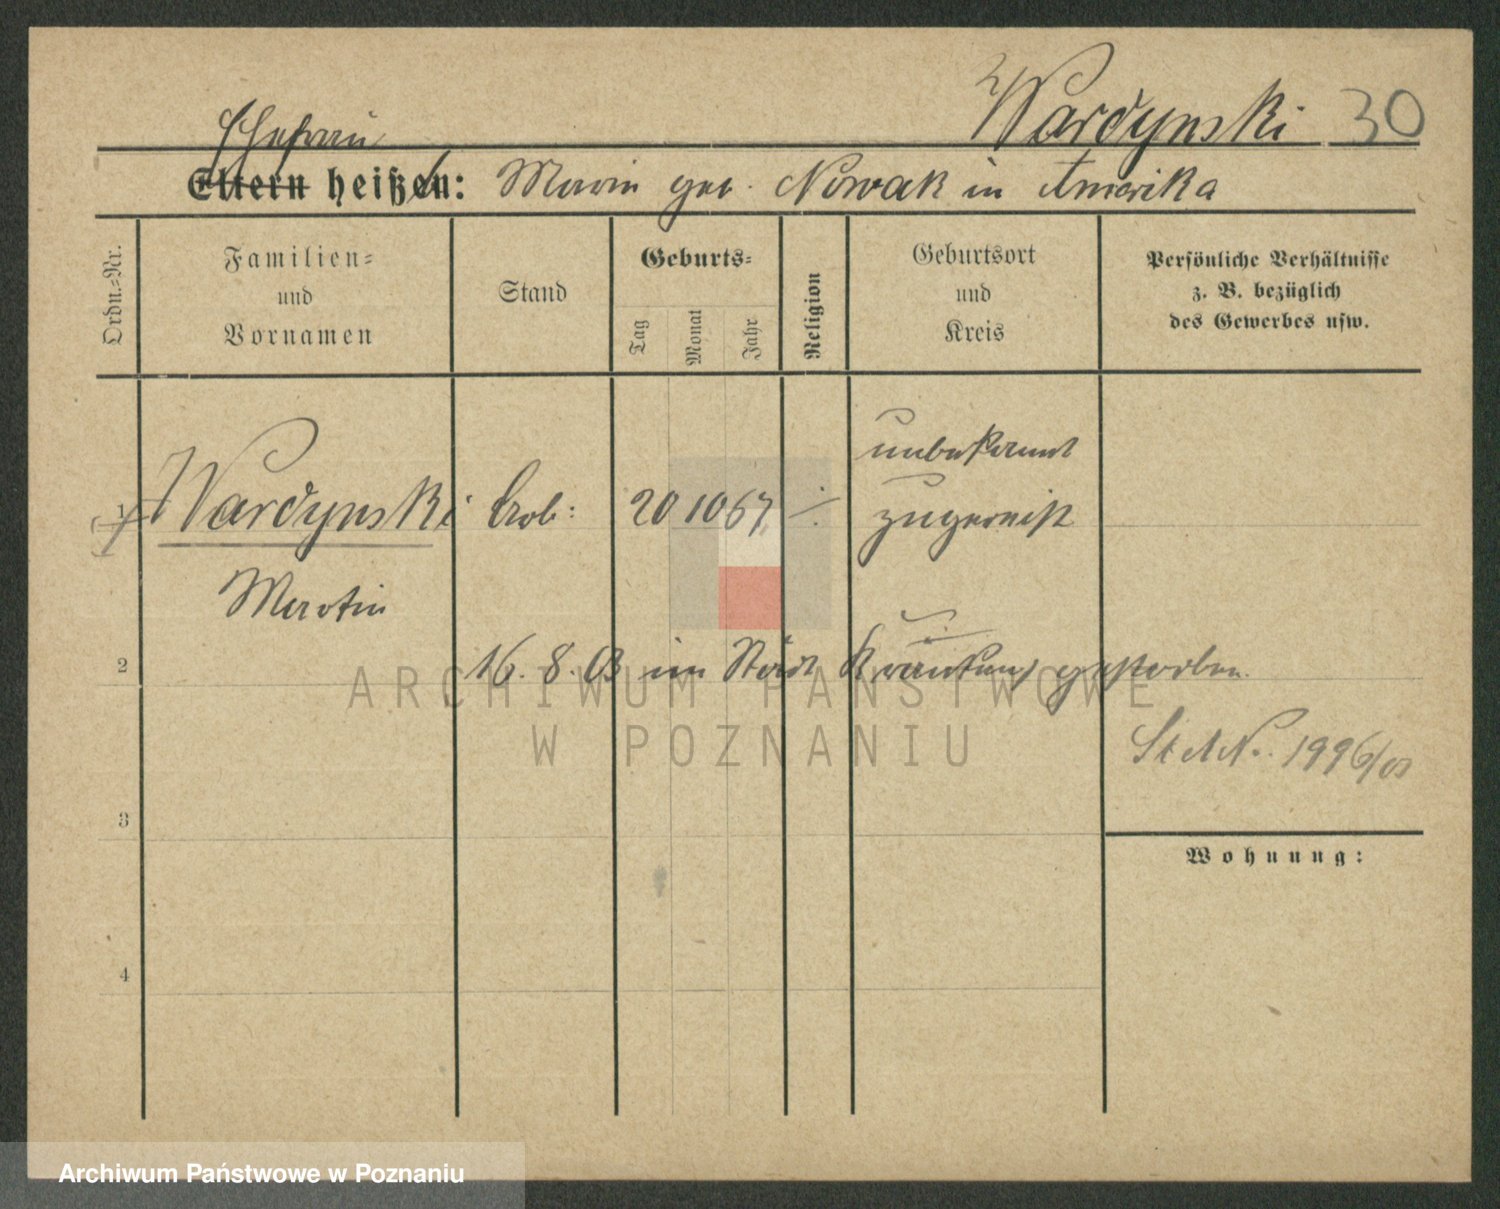 Wardynski 30
Ehefrau
Eltern heißen: Marie geb. Nowak in Amerika
Ordn.-Nr.
Familien-
und
Vornamen
Stand
Geburts-
Tag
Monat
Jahr
Religion
Geburtsort
und
Kreis
Persönliche Verhältnisse
z. B. bezüglich
des Gewerbes usw.
unbekannt
1 Wardynski Arb: 20 10 67 ·/· zugereist
Martin
2 16. 8. 03 im Städt Krankenh gestorben.
ARCHIWUM PAŃSTWOWE
W POZNANIU
St A No. 1996/03
3
Wohnung:
4
Archiwum Państwowe w Poznaniu